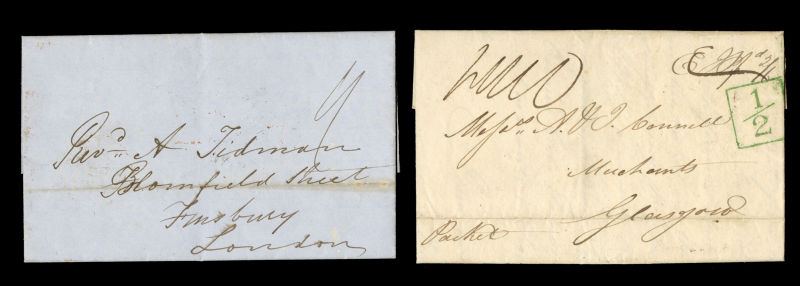 Revd. A Tidman
Blomfield Street
Finsbury
London
1/2
Messrs. A. & J. Connell
Merchants
Glasgow
Packet